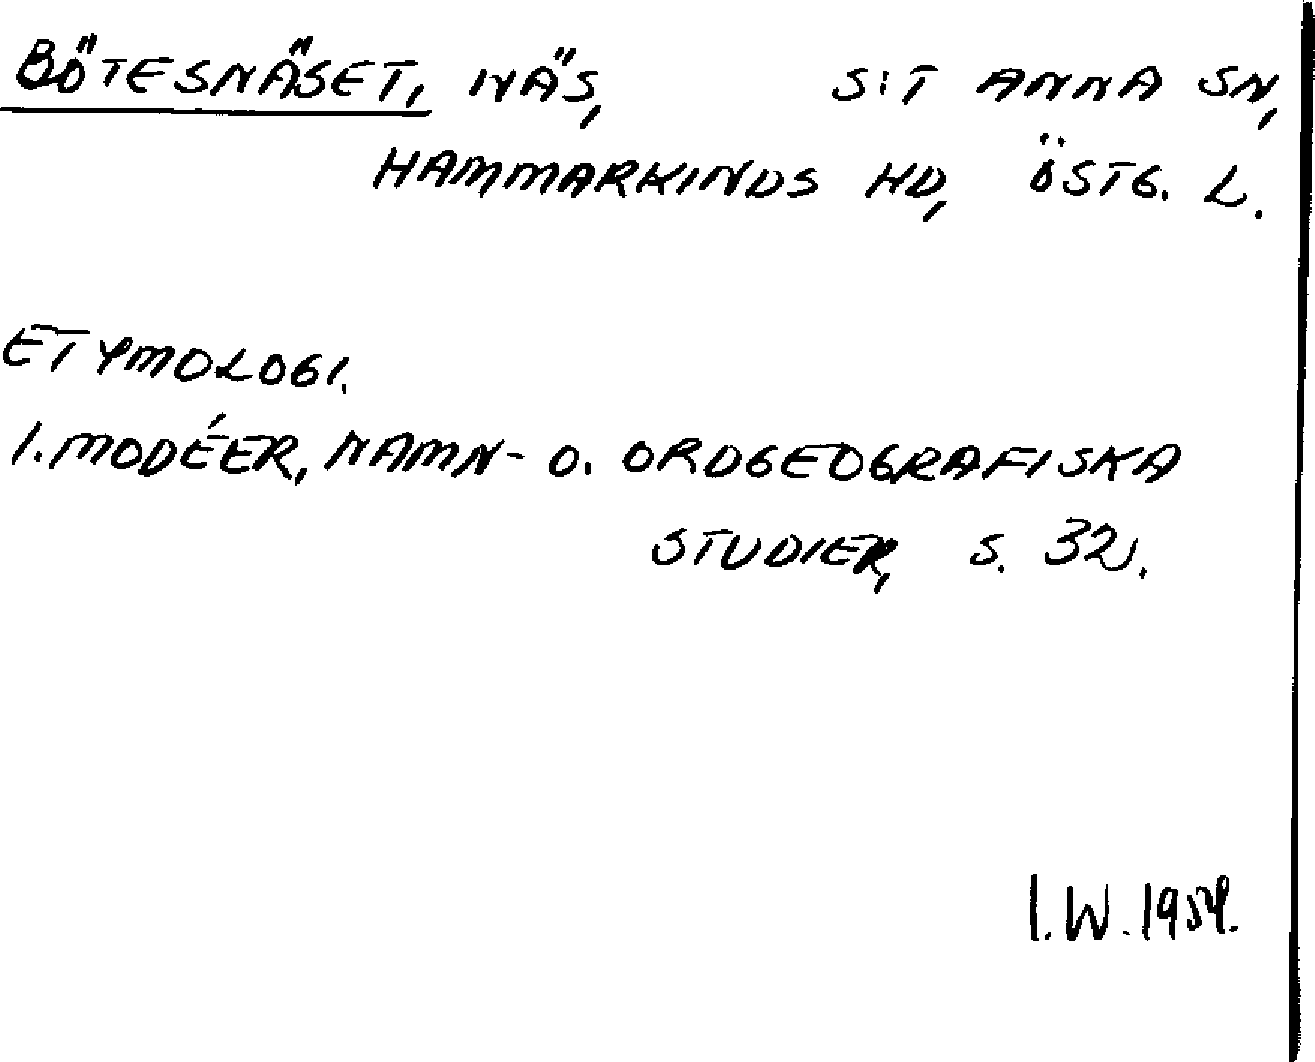 BÖTESNÄSET, NÄS, S:T ANNA SN,
HAMMARKINDS HD, ÖSTG. L.
ETYMOLOGI.
I. MODÉER, NAMN- O. ORDGEOGRAFISKA
STUDIER, S. 32.
I.W. 1954.